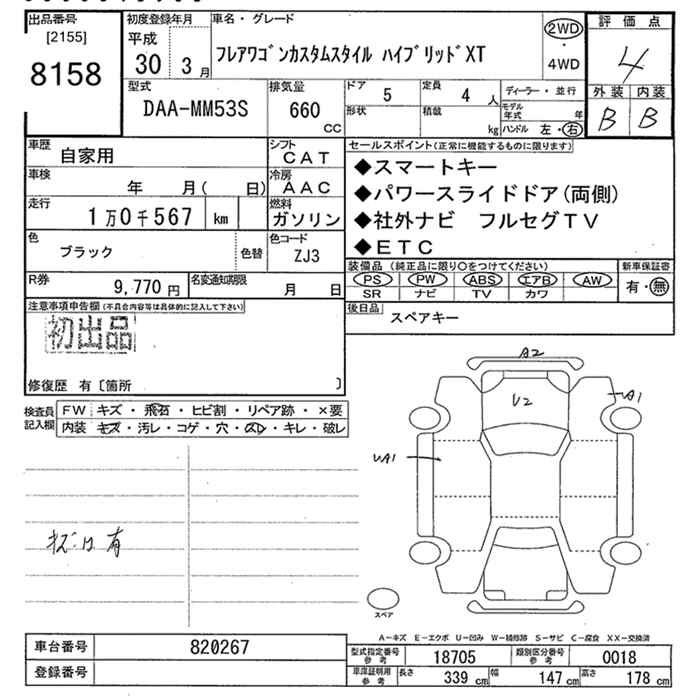 出品番号
[2155]
8158
初度登録年月
平成
30 3 月
車名・グレード
フレアワゴンカスタムスタイル ハイブリッドXT
2WD
・
4WD
評価点
4
外装 内装
B B
型式
DAA-MM53S
排気量
660
CC
ドア 5
定員 4 人
形状
積載 kg
ディーラー・並行
モデル年式 年
ハンドル 左・右
車歴 自家用
シフト CAT
車検 年 月( 日)
冷房 AAC
走行 1万0千567 km
燃料 ガソリン
色 ブラック 色替
色コード ZJ3
R券 9,770円
名変通知期限 月 日
セールスポイント(正常に機能するものに限ります)
◆スマートキー
◆パワースライドドア(両側)
◆社外ナビ フルセグTV
◆ETC
装備品(純正品に限り○をつけてください)
PS PW ABS エアB AW
SR ナビ TV カワ
新車保証書
有・無
後日品 スペアキー
注意事項申告欄(不具合内容等は具体的に記入して下さい)
初出品
修復歴 有〔箇所 〕
検査員記入欄
FW キズ・飛石・ヒビ割・リペア跡・×要
内装 キズ・汚レ・コゲ・穴・スレ・キレ・破レ
A2
U2
A1
UA1
スペア
A-キズ E-エクボ U-凹み W-補修跡 S-サビ C-腐食 XX-交換済
車台番号 820267
登録番号
型式指定番号 参考 18705
類別区分番号 参考 0018
車庫証明用 参考 長さ 339 cm 幅 147 cm 高さ 178 cm